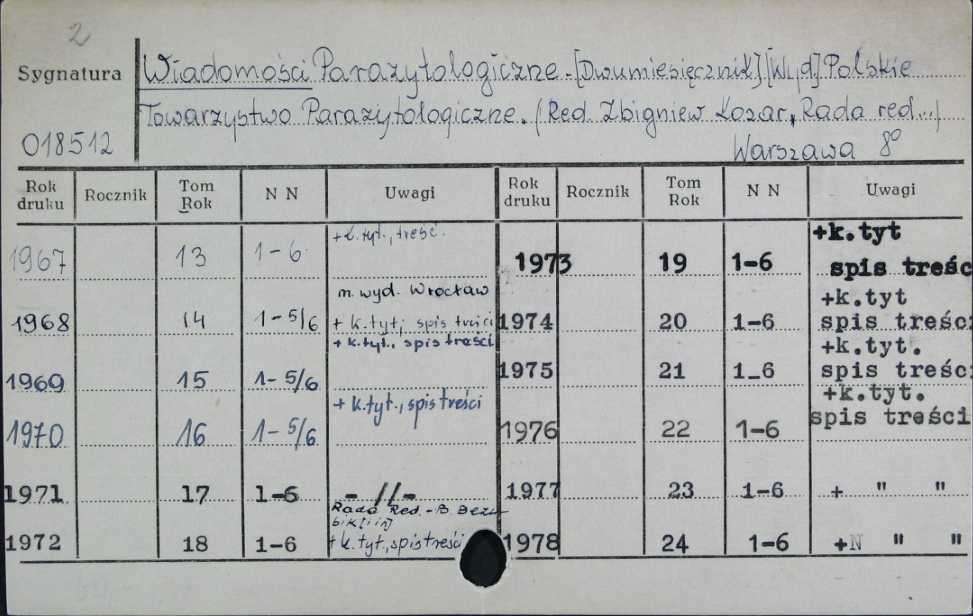 2
Sygnatura
018512
Wiadomości Parazytologiczne. [Dwumiesięcznik] [Wyd] Polskie
Towarzystwo Parazytologiczne. (Red. Zbigniew Kozar, Rada red...)
Warszawa 8°
Rok druku Rocznik Tom Rok N N Uwagi Rok druku Rocznik Tom Rok N N Uwagi
1967 13 1-6 +k.tyt., treść. 1973 19 1-6 +k.tyt spis treśc
1968 14 1-5/6 m. wyd. Wrocław + k.tyt; spis treści 1974 20 1-6 +k.tyt spis treści
1969 15 1-5/6 + k.tyt., spis treści 1975 21 1-6 +k.tyt. spis treści
1970 16 1-5/6 + k.tyt., spis treści 1976 22 1-6 +k.tyt. spis treści
1971 17 1-6 - // - 1977 23 1-6 + " "
1972 18 1-6 Rada Red. - B. + k.tyt., spis treści 1978 24 1-6 +N " "